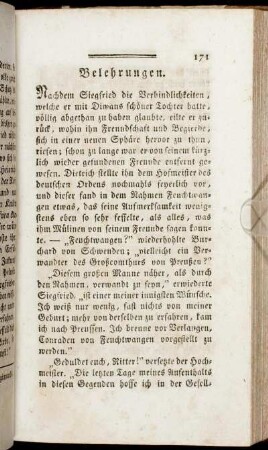 171
Belehrungen.
Nachdem Siegfried die Verbindlichkeiten,
welche er mit Diwans schöner Tochter hatte,
völlig abgethan zu haben glaubte, eilte er zu-
rück, wohin ihn Freundschaft und Begierde,
sich in einer neuen Sphäre hervor zu thun,
riefen; schon zu lange war er von seinem kürz-
lich wieder gefundenen Freunde entfernt ge-
wesen. Dietrich stellte ihn dem Hofmeister des
deutschen Ordens nochmals feyerlich vor,
und dieser fand in dem Nahmen Feuchtwan-
gen etwas, das seine Aufmerksamkeit wenig-
stens eben so sehr fesselte, als alles, was
ihm Mülinen von seinem Freunde sagen konn-
te. — „Feuchtwangen?“ wiederhohlte Bur-
chard von Schwenden; „vielleicht ein Ver-
wandter des Großcomthurs von Preußen?“
„Diesem großen Manne näher, als durch
den Nahmen, verwandt zu seyn,“ erwiederte
Siegfried, „ist einer meiner innigsten Wünsche.
Ich weiß nur wenig, fast nichts von meiner
Geburt; mehr von derselben zu erfahren, kam
ich nach Preussen. Ich brenne vor Verlangen,
Conraden von Feuchtwangen vorgestellt zu
werden.“
„Geduldet euch, Ritter!“ versetzte der Hoch-
meister. „Die letzten Tage meines Aufenthalts
in diesen Gegenden hoffe ich in der Gesell-